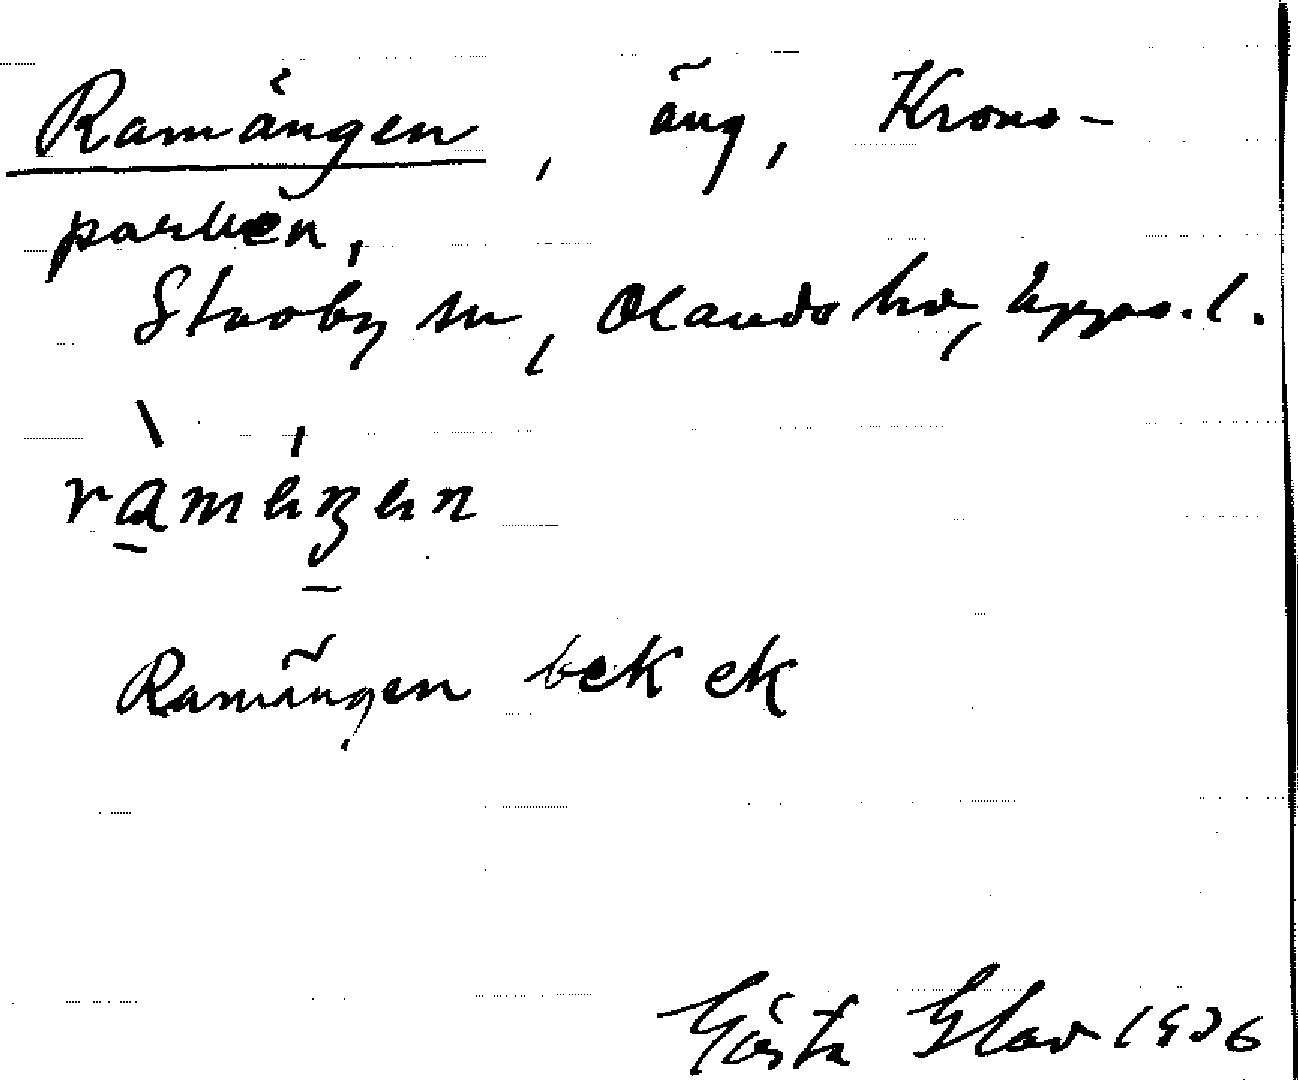 Ramängen, äng, Krono-
parken,
Stavby sn, Olands hd, Upps. l.
ràmäŋen
Ramängen bek ek
Gösta 1936